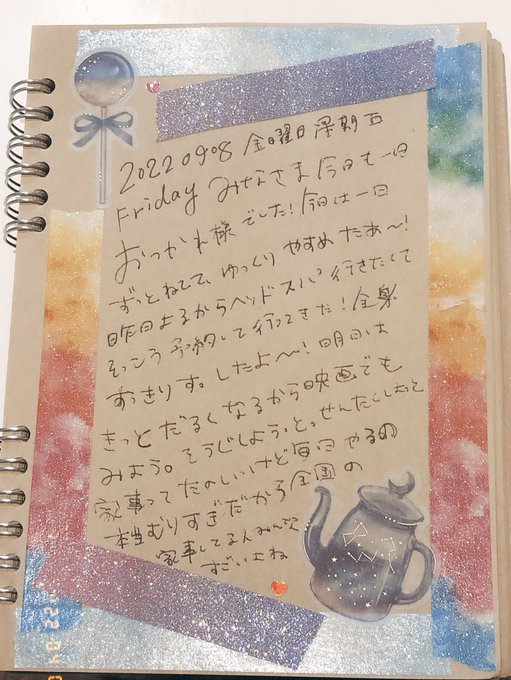 20220908 金曜日 澤期五
Friday みなさま 今日も一日
おつかれ様でした！今日は一日
ずっとねてて、ゆっくり やすめたあ〜！
昨日よるからヘッドスパ 行きたくて
そっこう予約して行ってきた！全身
すっきりす。したよ〜！明日は
きっと だるくなるから映画でも
みよう。そうじしようっと。せんたくしよっと
家事って たのしいけど毎日 やるの
本当むりすぎだから全国の
家事してる人みんな
すごいよね